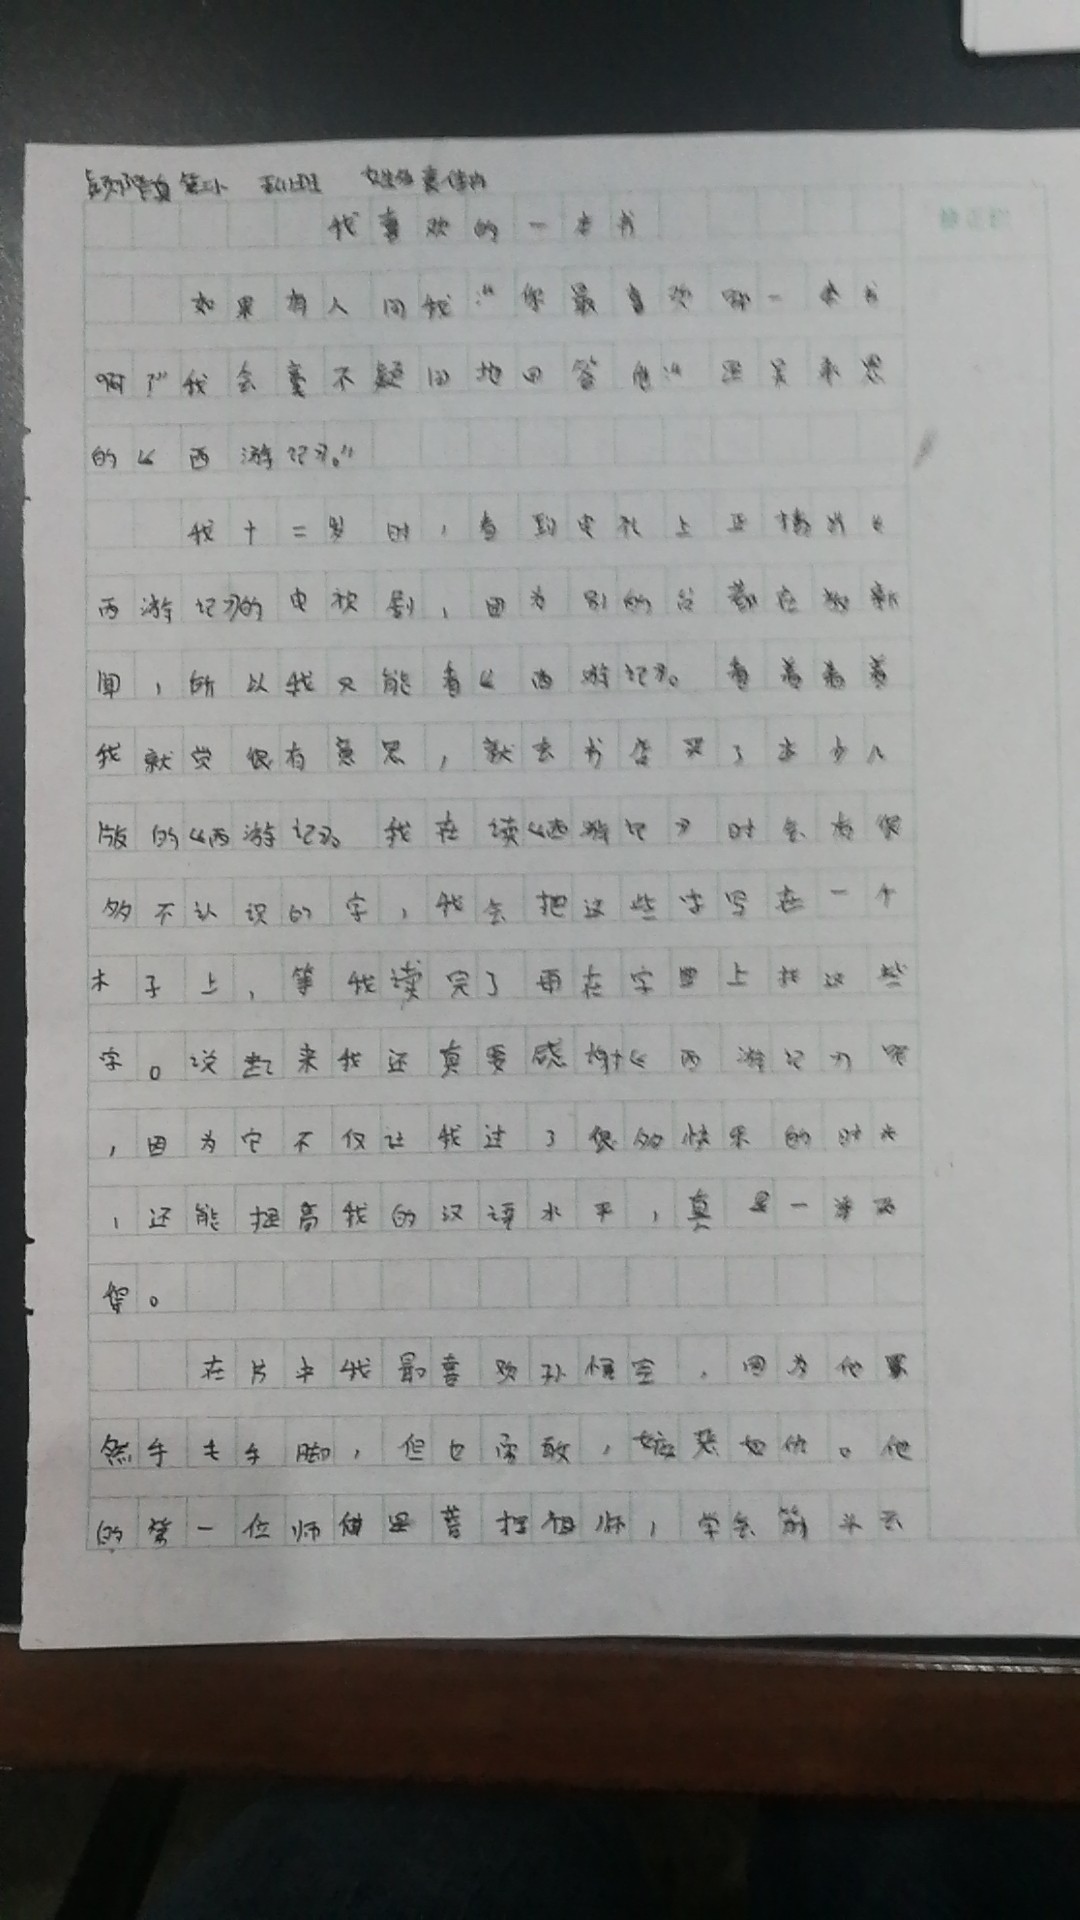 我喜欢的一本书
如果有人问我:“你最喜欢哪一本书
啊?”我会毫不疑问地回答他:“是吴承恩
的《西游记》。”
我十二岁时,看到电视上正播出《
西游记》的电视剧,因为别的台都在放新
闻,所以我只能看《西游记》。看着看着
我就觉很有意思,就去书店买了本少儿
版的《西游记》。我在读《西游记》时会有很
多不认识的字,我会把这些字写在一个
本子上,等我读完了再在字典上找这些
字。说起来我还真要感谢《西游记》呢
,因为它不仅让我过了很多快乐的时光
,还能提高我的汉语水平,真是一举两
得。
在片中我最喜欢孙悟空,因为他虽
然手毛手脚,但也勇敢,嫉恶如仇。他
的第一位师傅是菩提祖师,学会筋斗云